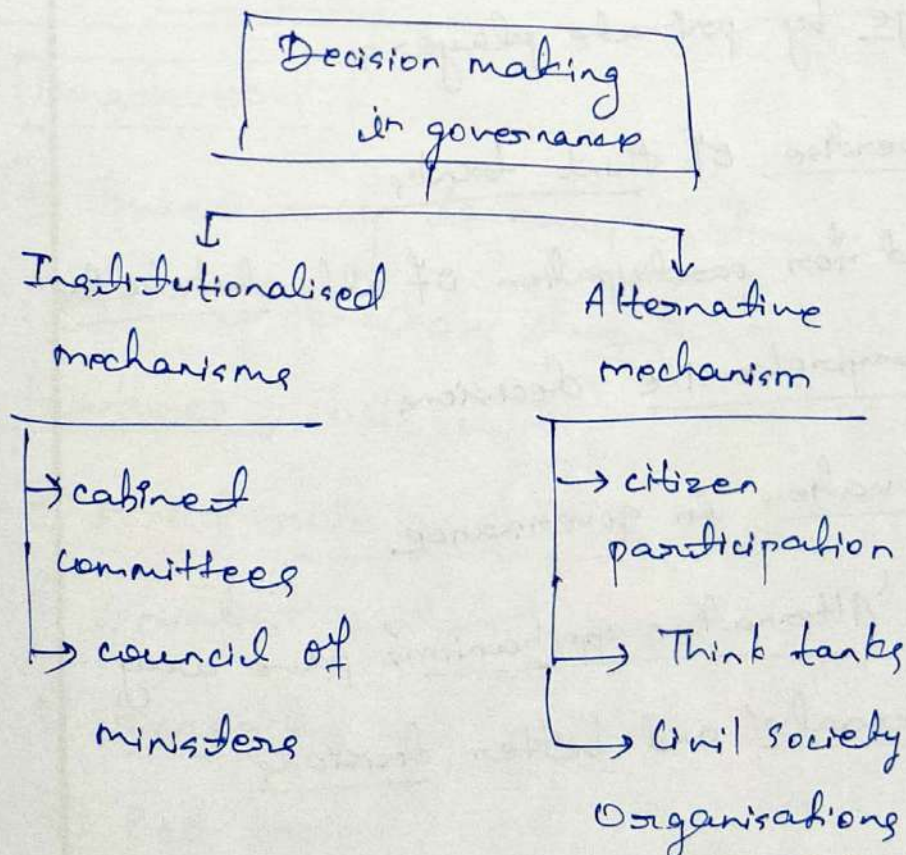 Decision making
in governance
Institutionalised
mechanisms
→ cabinet
committees
→ council of
ministers
Alternative
mechanism
→ citizen
participation
→ Think tanks
→ Civil society
Organisations